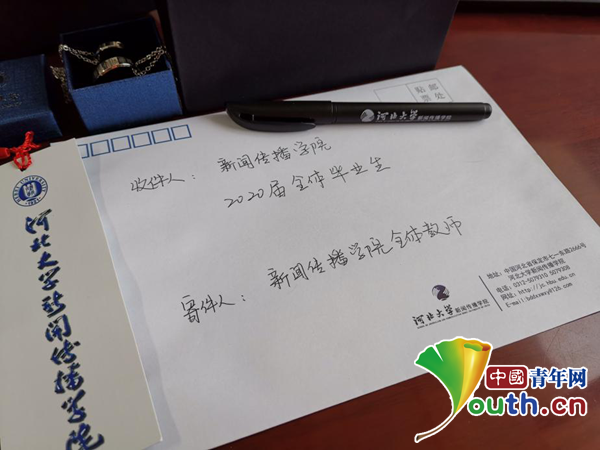 贴邮
票处
河北大学 新闻传播学院
收件人： 新闻传播学院
2020届全体毕业生
寄件人： 新闻传播学院全体教师
河北大学 新闻传播学院
地址：中国河北省保定市七一东路2666号
河北大学新闻传播学院
电话：0312-5079310 5079308
网址：http://jc.hbu.edu.cn
河北大学新闻传播学院
中国青年网
Youth.cn